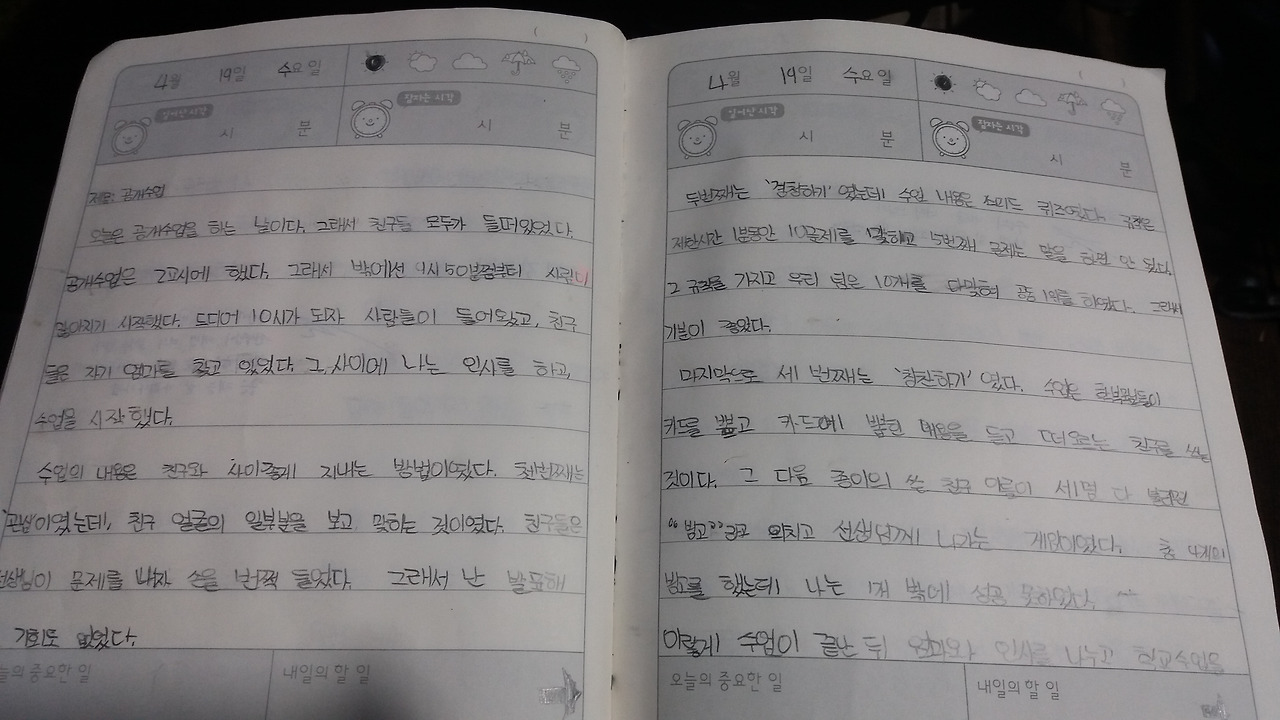 4월 19일 수요일
일어난 시각 시 분 잠자는 시각 시 분
제목: 공개수업
오늘은 공개수업을 하는 날이다. 그래서 친구들 모두가 들떠있었다.
공개수업은 2교시에 했다. 그래서 밖에선 9시 50분쯤부터 사람이
많아지기 시작했다. 드디어 10시가 되자 사람들이 들어왔고, 친구
들은 자기 엄마를 찾고 있었다. 그 사이에 나는 인사를 하고,
수업을 시작했다.
수업의 내용은 친구와 사이좋게 지내는 방법이였다. 첫번째는
'관심'이였는데, 친구 얼굴의 일부분을 보고 맞히는 것이였다. 친구들은
선생님이 문제를 내자 손을 번쩍 들었다. 그래서 난 발표해
기회도 없었다.
늘의 중요한 일 내일의 할 일
4월 19일 수요일
일어난 시각 시 분 잠자는 시각 시 분
두번째는 '경청하기'였는데 수업 내용은 스피드 퀴즈였다. 규칙은
제한시간 1분동안 10문제를 맞히고 5번째 문제는 말을 하면 안 됬다.
그 규칙을 가지고 우리 팀은 10개를 다맞혀 공동 1위를 하였다. 그래서
기분이 좋았다.
마지막으로 세 번째는 '칭찬하기'였다. 수업은 학부모님들이
카드를 뽑고 카드에 뽑힌 내용을 듣고 떠오르는 친구를 쓰는
것이다. 그 다음 종이의 쓴 친구 이름이 세명 다 불리면
"빙고"라고 외치고 선생님께 나가는 게임이였다. 총 4개의
빙고를 했는데 나는 1개 밖에 성공 못하였다.
이렇게 수업이 끝난 뒤 엄마와 인사를 나누고 학교수업을
오늘의 중요한 일 내일의 할 일